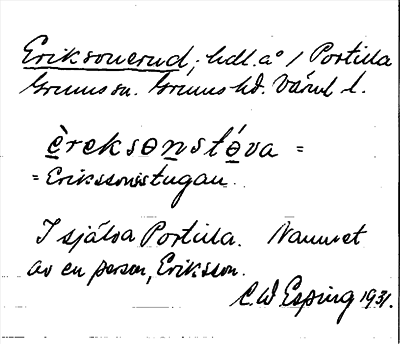 Eriksonerud, hdl. a° / Portilla
Grums sn. Grums hd. Värml l.
èreksonstóva =
= Erikssonsstugan.
I själva Portilla. Namnet
av en person, Eriksson.
C. W Esping 1931.